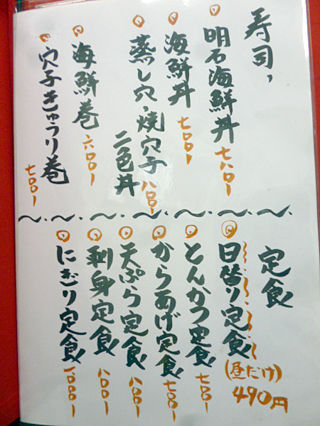 寿司、
明石海鮮丼 七八〇〇ー
海鮮丼 七〇〇ー
蒸し穴・焼穴子
二色丼 八〇〇ー
海鮮巻 六〇〇ー
穴子きゅうり巻 七〇〇ー
定食
日替り定食 (昼だけ) 490円
とんかつ定食 七〇〇ー
からあげ定食 七〇〇ー
天ぷら定食 八〇〇ー
刺身定食 八〇〇ー
にぎり定食 一、〇〇〇ー